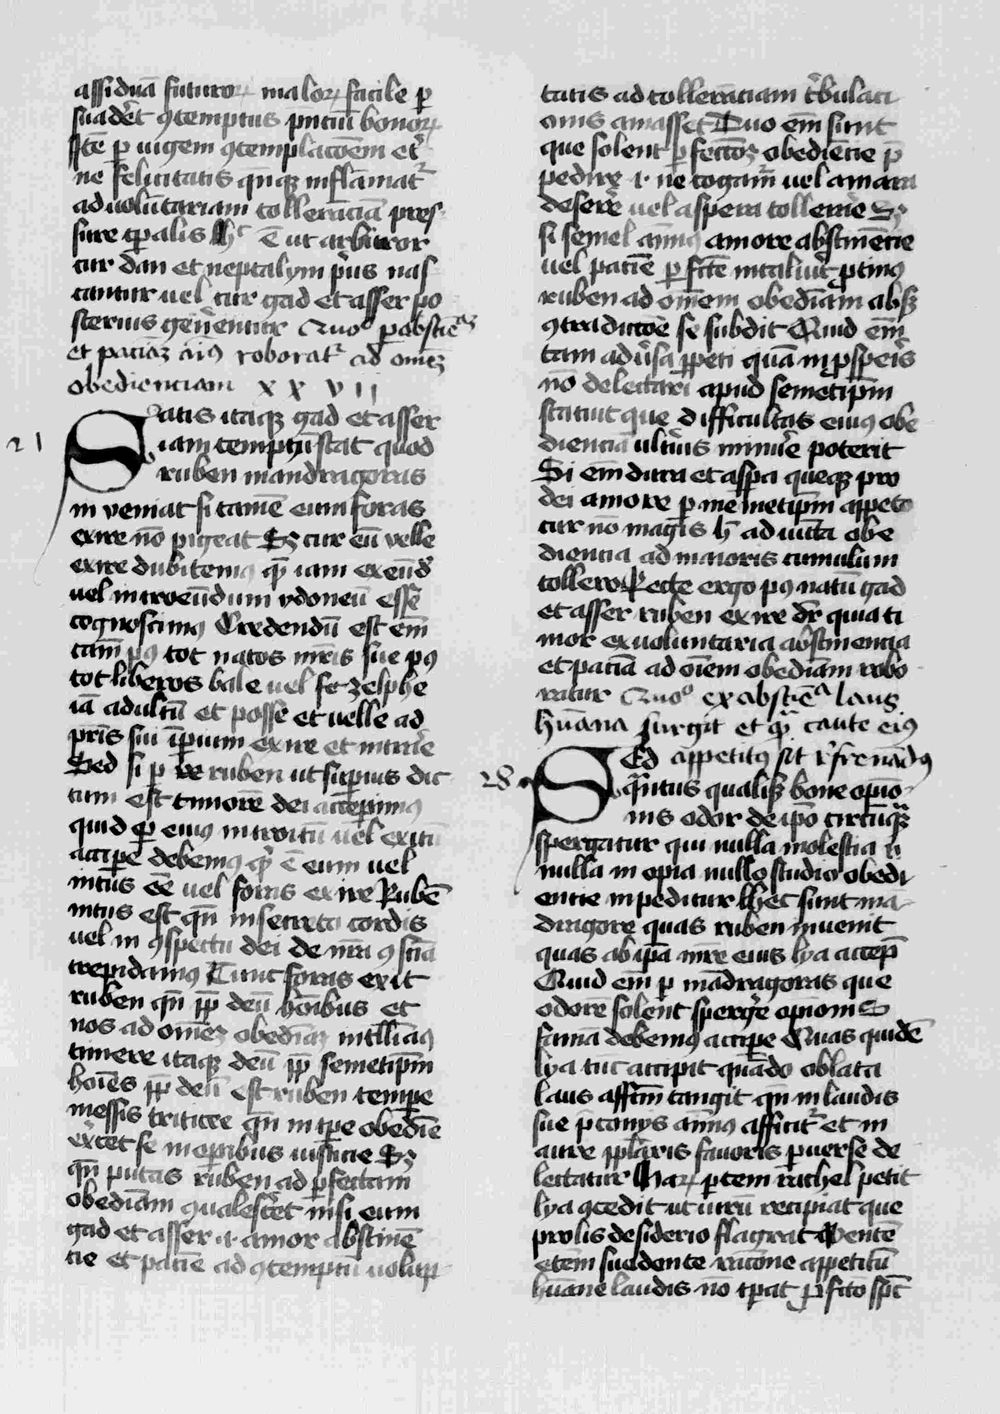 assiduā futuroꝝ maloꝝ facile ꝑ
suadēt ꝯtemptus pn̄tiū bonoꝝ
Itē ꝑ iugem ꝯtemplacōem et̄
ne felicitatis qn̄qꝫ inflāmat᷑
ad volūtariam tollerāciā pres
sure tꝑalis Hͨ ē ut arbitror
cur dan et neptalym pͥus nas
cantur vel cur gad et asser po
sterius gen̄entur Quoͦ ꝑ abstiēᵃꝫ
et paciāꝫ aīꝯ roborat᷑ ad om̄eꝫ
obedienciam XXVII
Satis itaqꝫ gad et asser
iam temptū stat quod
ruben mandragoras
in veniat si tamē eum foras
exire nō pigeat Sꝫ cur eū velle
exire dubitemꝯ qͣ iam exeūdͥ
vel introeūdum ydoneū esse
cognoscimꝯ Credendū est em̄
tam̄ pꝯ tot natos mr̄is sue pꝯ
tot liberos bale vel fe zelphe
iā adultū et posse et velle ad
pr̄is sui ip̄ium exire et intrāe
Sed si ꝑ ruben ut sepius dic
tum est timorē dei accepimꝯ
quid ꝑ eius introitū vel exitū
accipe debemꝯ qͥ ē eum vel
intus ēe vel foras exire Rubē
intus est qn̄ in secreto cordis
vel in ꝯspectu dei de nr̄a ꝯsciā
trepidamꝯ Tunc foras exit
ruben qn̄ ꝓp̄ deū hōibus et
nos ad om̄eꝫ obediaꝫ inclliāꝯ
timere itaqꝫ deū ꝓp̄ semetip̄m
hoīes ꝓp̄ deū est ruben tempe
messis triticee qn̄ in tꝑe obediē
ex̄cet se in oꝑibus iusticie Sꝫ
qn̄ putas ruben ad ꝑfectam
obediām qualescēt nisi eum
gad et asser .i. amor abstinē
cie et paciē ad ꝯtemptū volup
tatis ad tollerāciam tͥbulaci
onis amasset Duo em̄ sunt
que solent ꝑfectōꝫ obediēcie p̄
pedire .i. ne cogam̄ vel amara
deserēr vel aspera tollerāe Sꝫ
si semel aīmꝯ amore abstinēcie
vel paciē ꝑfectē incaluit ꝓtinꝯ
ruben ad om̄em obediām absqꝫ
ꝯtradictōe se subdit Quid em̄
tam adūsa ꝑpeti quā in ꝓspeͥis
nō delectari apud semetip̄m
statuit que difficultas eius obe
dienciā ulteͥus minuēe poterit
Si em̄ dura et aspa queqꝫ pro
dei amore ꝑ me metip̄m appeto
cur nō magis h̄ ad iūcta obe
diencia ad maioris cumulum
tollero Recte ergo pꝯ natū gad
et asser ruben exire dr̄ quia ti
mor ex voluntaria abstinencia
et paciā ad oīem obediām robo
ratur Quoͦ ex abstiēᵃ laus
hūana surgit et qͣ caute eiꝯ
Sed appetitꝯ sit rͤfrenādꝯ
q̄ntus qualisqꝫ bone opīo
nis odor de ip̄o circūqꝫ
spergatur qui nulla molestia
nulla in opia nullo studio obedi
encie inpeditur Hec sunt mā
dragore quas ruben invenit
quas ab ip̄a mr̄e eius lya accep̄
Quid em̄ ꝑ mādragoras que
odorē solent spergēe opīonis
famā debemꝯ accipe Quas quidē
lya tūc accipit quādo oblata
laus affcm̄ tangit qn̄ in laudis
sue p̄conys aīmꝯ afficit᷑ et in
aure ppl̄aris favoris ꝑverse de
lectatur Haꝝ ꝑtem rachel petit
lya ꝯcedit ut virū recipiat que
prolis desiderio flagrat Ponitē
etem̄ suadente racōne appetitū
hūane laudis nō tꝑat ꝑfcō spc̄